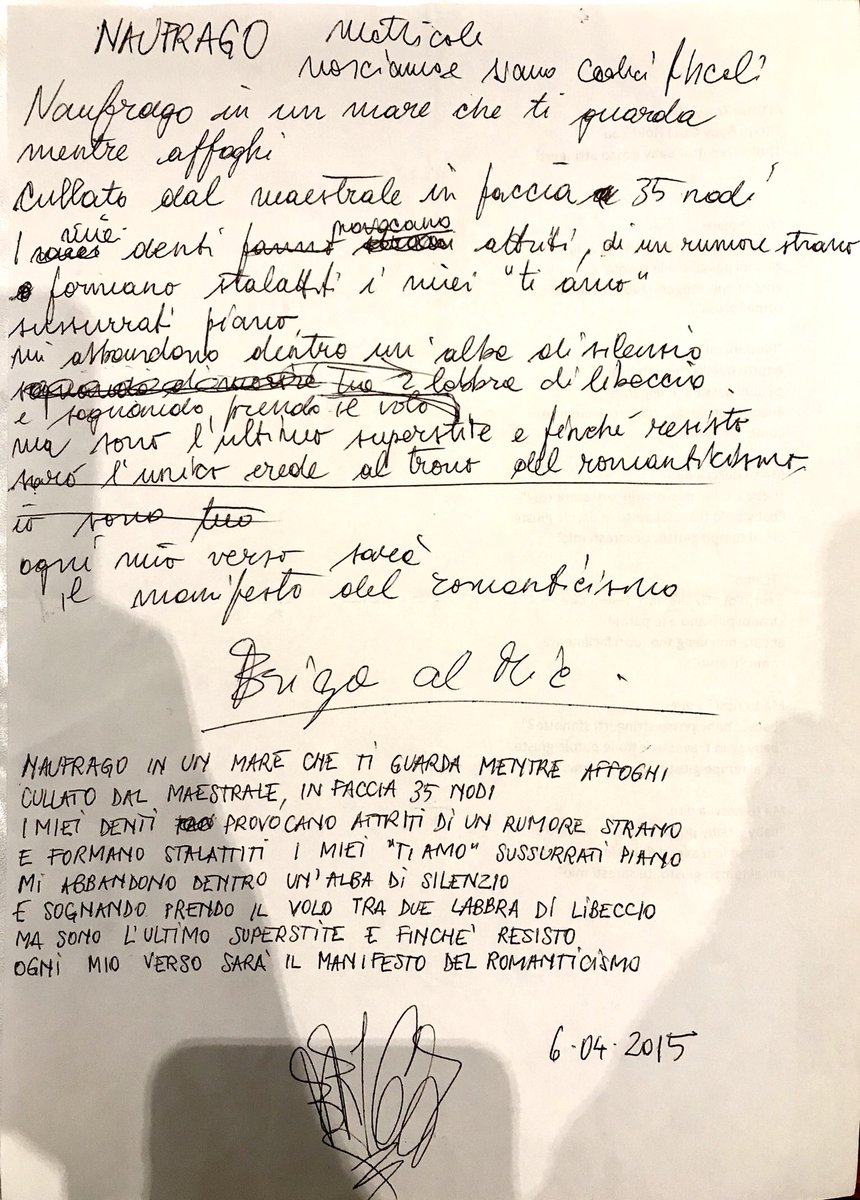 NAUFRAGO matricole
nasciamo e siamo codici fiscali
Naufrago in un mare che ti guarda
mentre affoghi
cullato dal maestrale in faccia a 35 nodi
I miei denti fanno provocano attriti, di un rumore strano
e formano stalattiti i miei "ti amo"
sussurrati piano,
mi abbandono dentro un'alba di silenzio
tra 2 labbra di libeccio
e sognando prendo il volo
ma sono l'ultimo superstite e finché resisto
sarò l'unico erede al trono del romanticismo,
io sono tuo
ogni mio verso sarà
il manifesto del romanticismo
Briga al Mic.
NAUFRAGO IN UN MARE CHE TI GUARDA MENTRE AFFOGHI
CULLATO DAL MAESTRALE, IN FACCIA 35 NODI
I MIEI DENTI PROVOCANO ATTRITI DI UN RUMORE STRANO
E FORMANO STALATTITI I MIEI "TI AMO" SUSSURRATI PIANO
MI ABBANDONO DENTRO UN'ALBA DI SILENZIO
E SOGNANDO PRENDO IL VOLO TRA DUE LABBRA DI LIBECCIO
MA SONO L'ULTIMO SUPERSTITE E FINCHE' RESISTO
OGNI MIO VERSO SARÀ IL MANIFESTO DEL ROMANTICISMO
6.04.2015